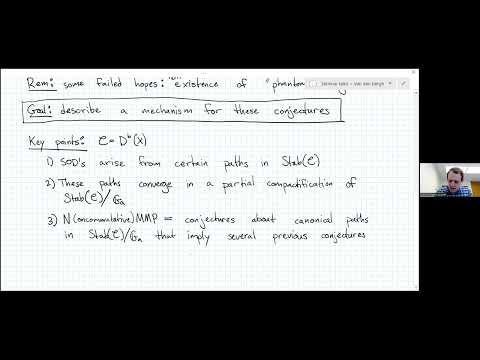 Rem: some failed hopes: existence of "phantom
Goal: describe a mechanism for these conjectures
Key points: C = D^b(X)
1) SOD's arise from certain paths in Stab(C)
2) These paths converge in a partial compactification of
Stab(C)/G_a
3) N(oncommutative) MMP = conjectures about canonical paths
in Stab(C)/G_a that imply several previous conjectures